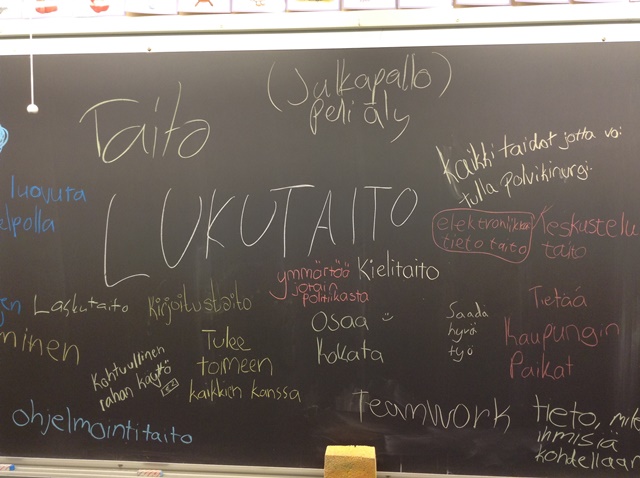 (Jalkapallo)
peli äly
Taito
Kaikki taidot jotta voi
tulla polvikinurgi.
luovuta
elpolla
LUKUTAITO
tieto taito
keskustelu
taito
ymmärtää
jotain
politiikasta
Kielitaito
Laskutaito
Kirjoitustaito
minen
Osaa
kokata
Saada
hyvä
työ
Tietää
kaupungin
Paikat
Kohtuullinen
rahan käyttö
Tulee
toimeen
kaikkien kanssa
ohjelmointitaito
Teamwork
tieto, mite
ihmisiä
kohdellaan